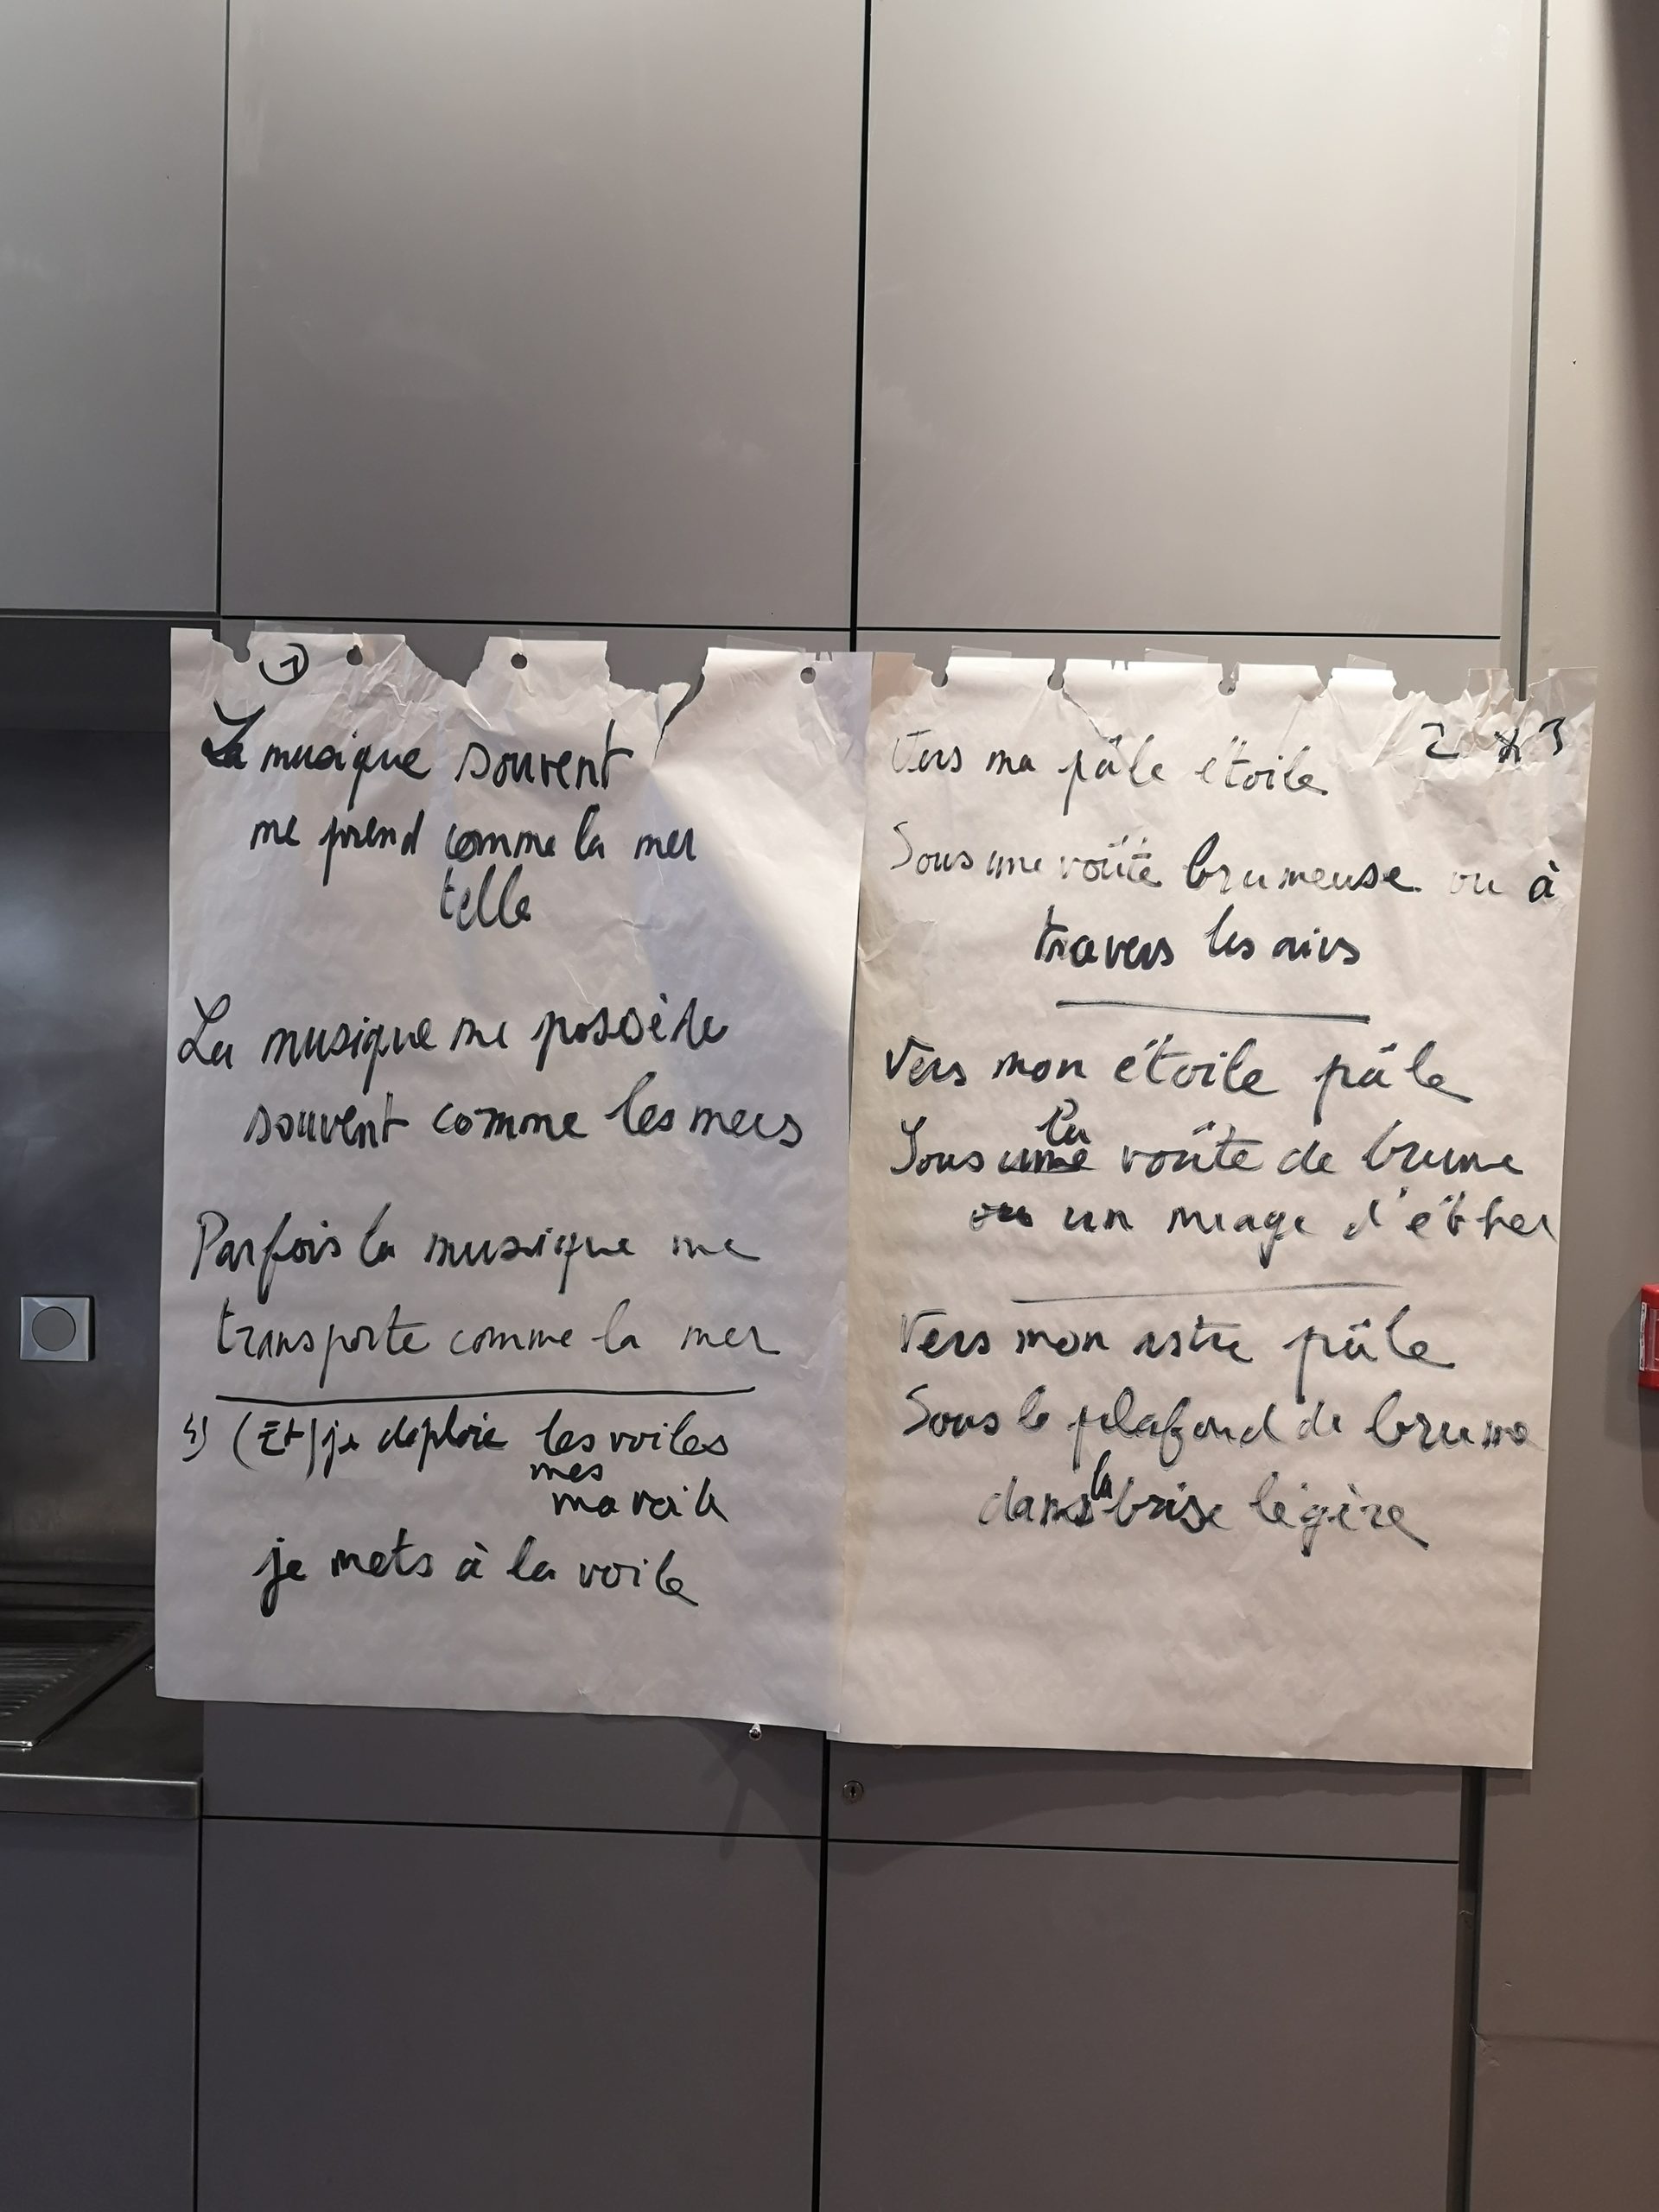 1
La musique souvent
me prend comme la mer
telle
La musique me possède
souvent comme les mers
Parfois la musique me
transporte comme la mer
4) (Et) je déploie les voiles
mes
ma voile
je mets à la voile
2 3
Vers ma pâle étoile
Sous une voûte brumeuse ou à
travers les airs
Vers mon étoile pâle
la
Sous une voûte de brume
ou un nuage d'éther
Vers mon astre pâle
Sous le plafond de brume
la
dans brise légère